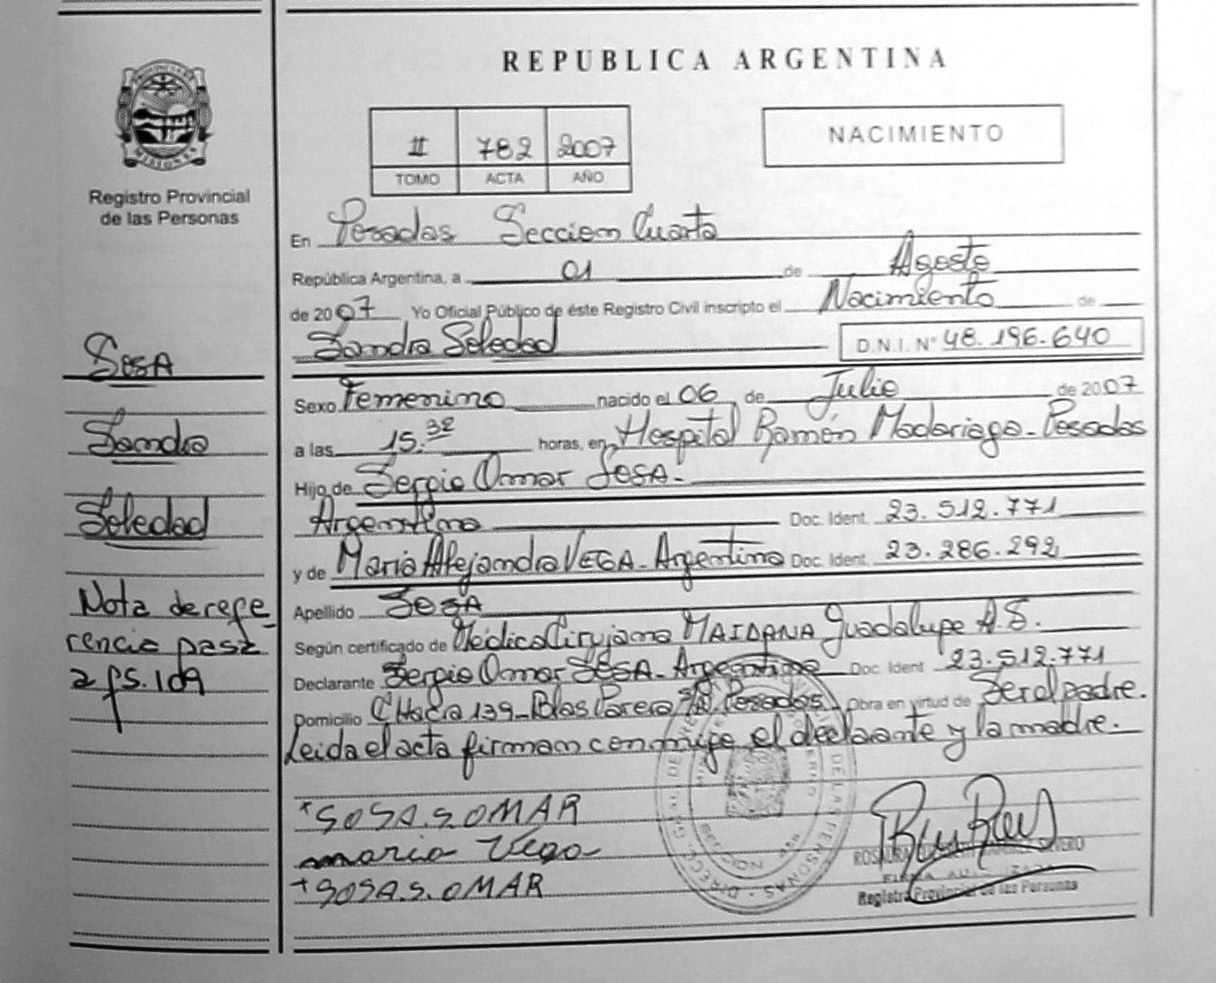 REPUBLICA ARGENTINA
PROVINCIA DE
MISIONES
Registro Provincial
de las Personas
II 782 2007
TOMO ACTA AÑO
NACIMIENTO
En Posadas Seccion Cuarta
República Argentina, a 01 de Agosto
de 2007 Yo Oficial Público de éste Registro Civil inscripto el Nacimiento de
Sandra Soledad D.N.I. N° 48.196.640
Sexo Femenino nacido el 06 de Julio de 2007
a las 15.32 horas, en Hospital Ramón Madariaga - Posadas
Hijo de Sergio Omar SOSA.-
Argentino Doc. Ident. 23.512.771
y de Maria Alejandra VEGA - Argentina Doc. Ident. 23.286.292
Apellido SOSA
Según certificado de Médica Cirujana MAIDANA Guadalupe A.S.
Declarante Sergio Omar SOSA - Argentino Doc. Ident 23.512.771
Domicilio CHacra 139 - Blas Parera Posadas. Obra en virtud de Ser el padre.
Leida el acta firman conmigo el declarante y la madre.-
SOSA
Sandra
Soledad
Nota de refe
rencia pasa
a fs. 109
SOSA.S.OMAR
maria Vega
SOSA.S.OMAR
Registro Provincial de las Personas